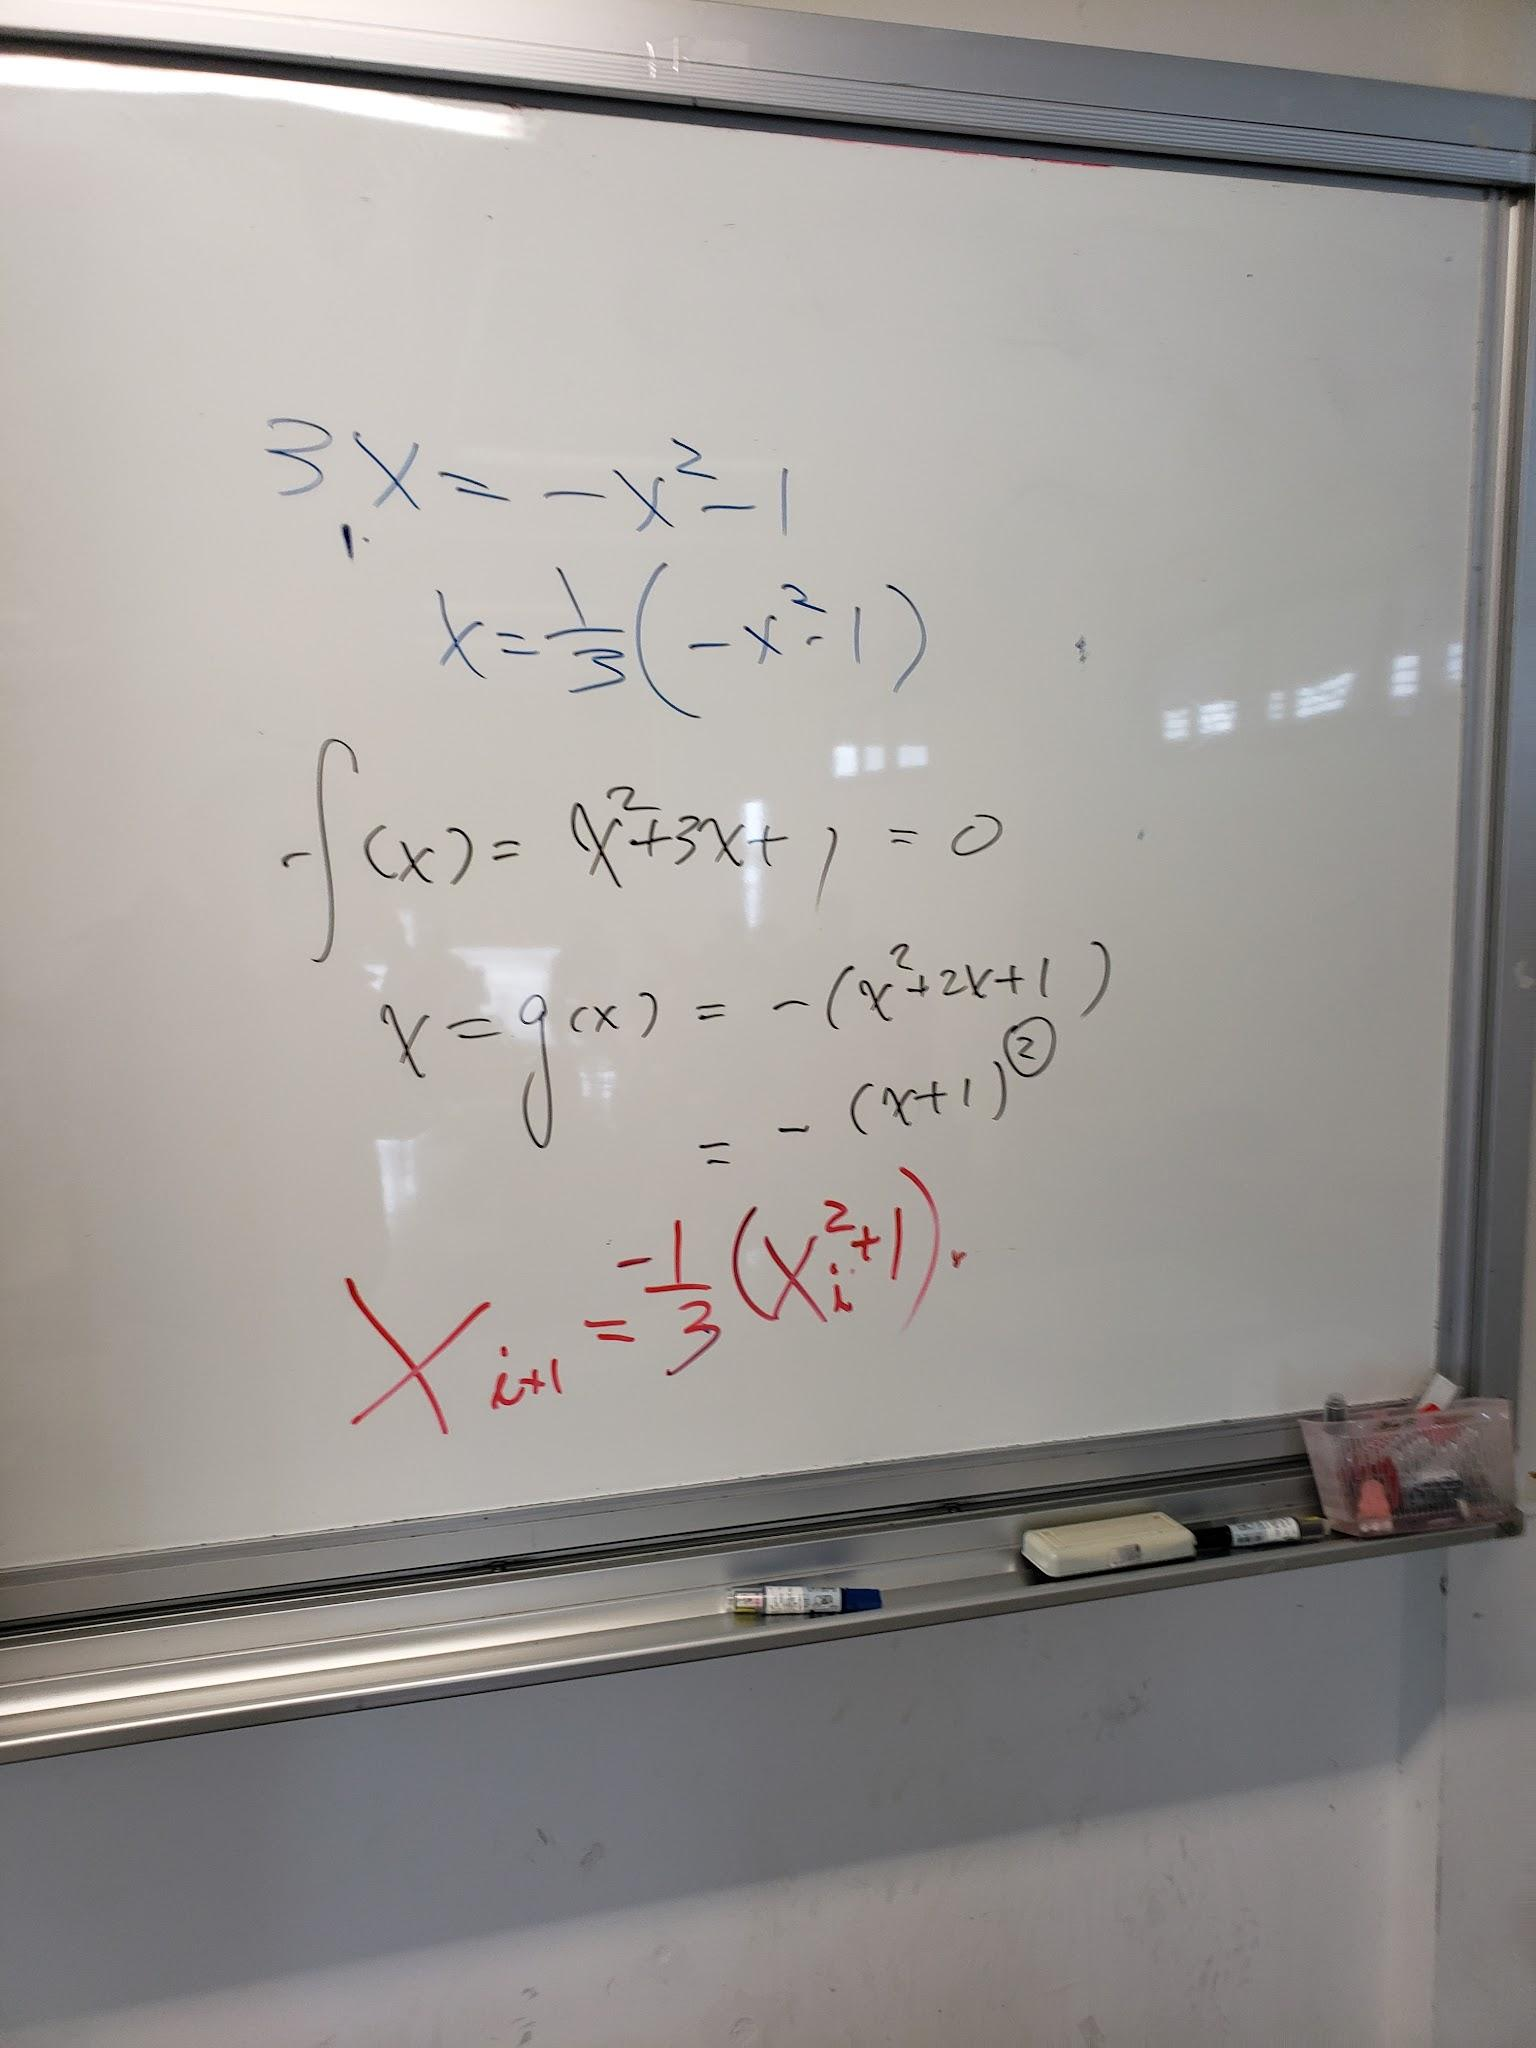 3x = -x² - 1
x = 1/3 (-x² - 1)
f(x) = x² + 3x + 1 = 0
x = g(x) = -(x² + 2x + 1)
= -(x+1)②
X_{i+1} = -1/3 (X_i² + 1).